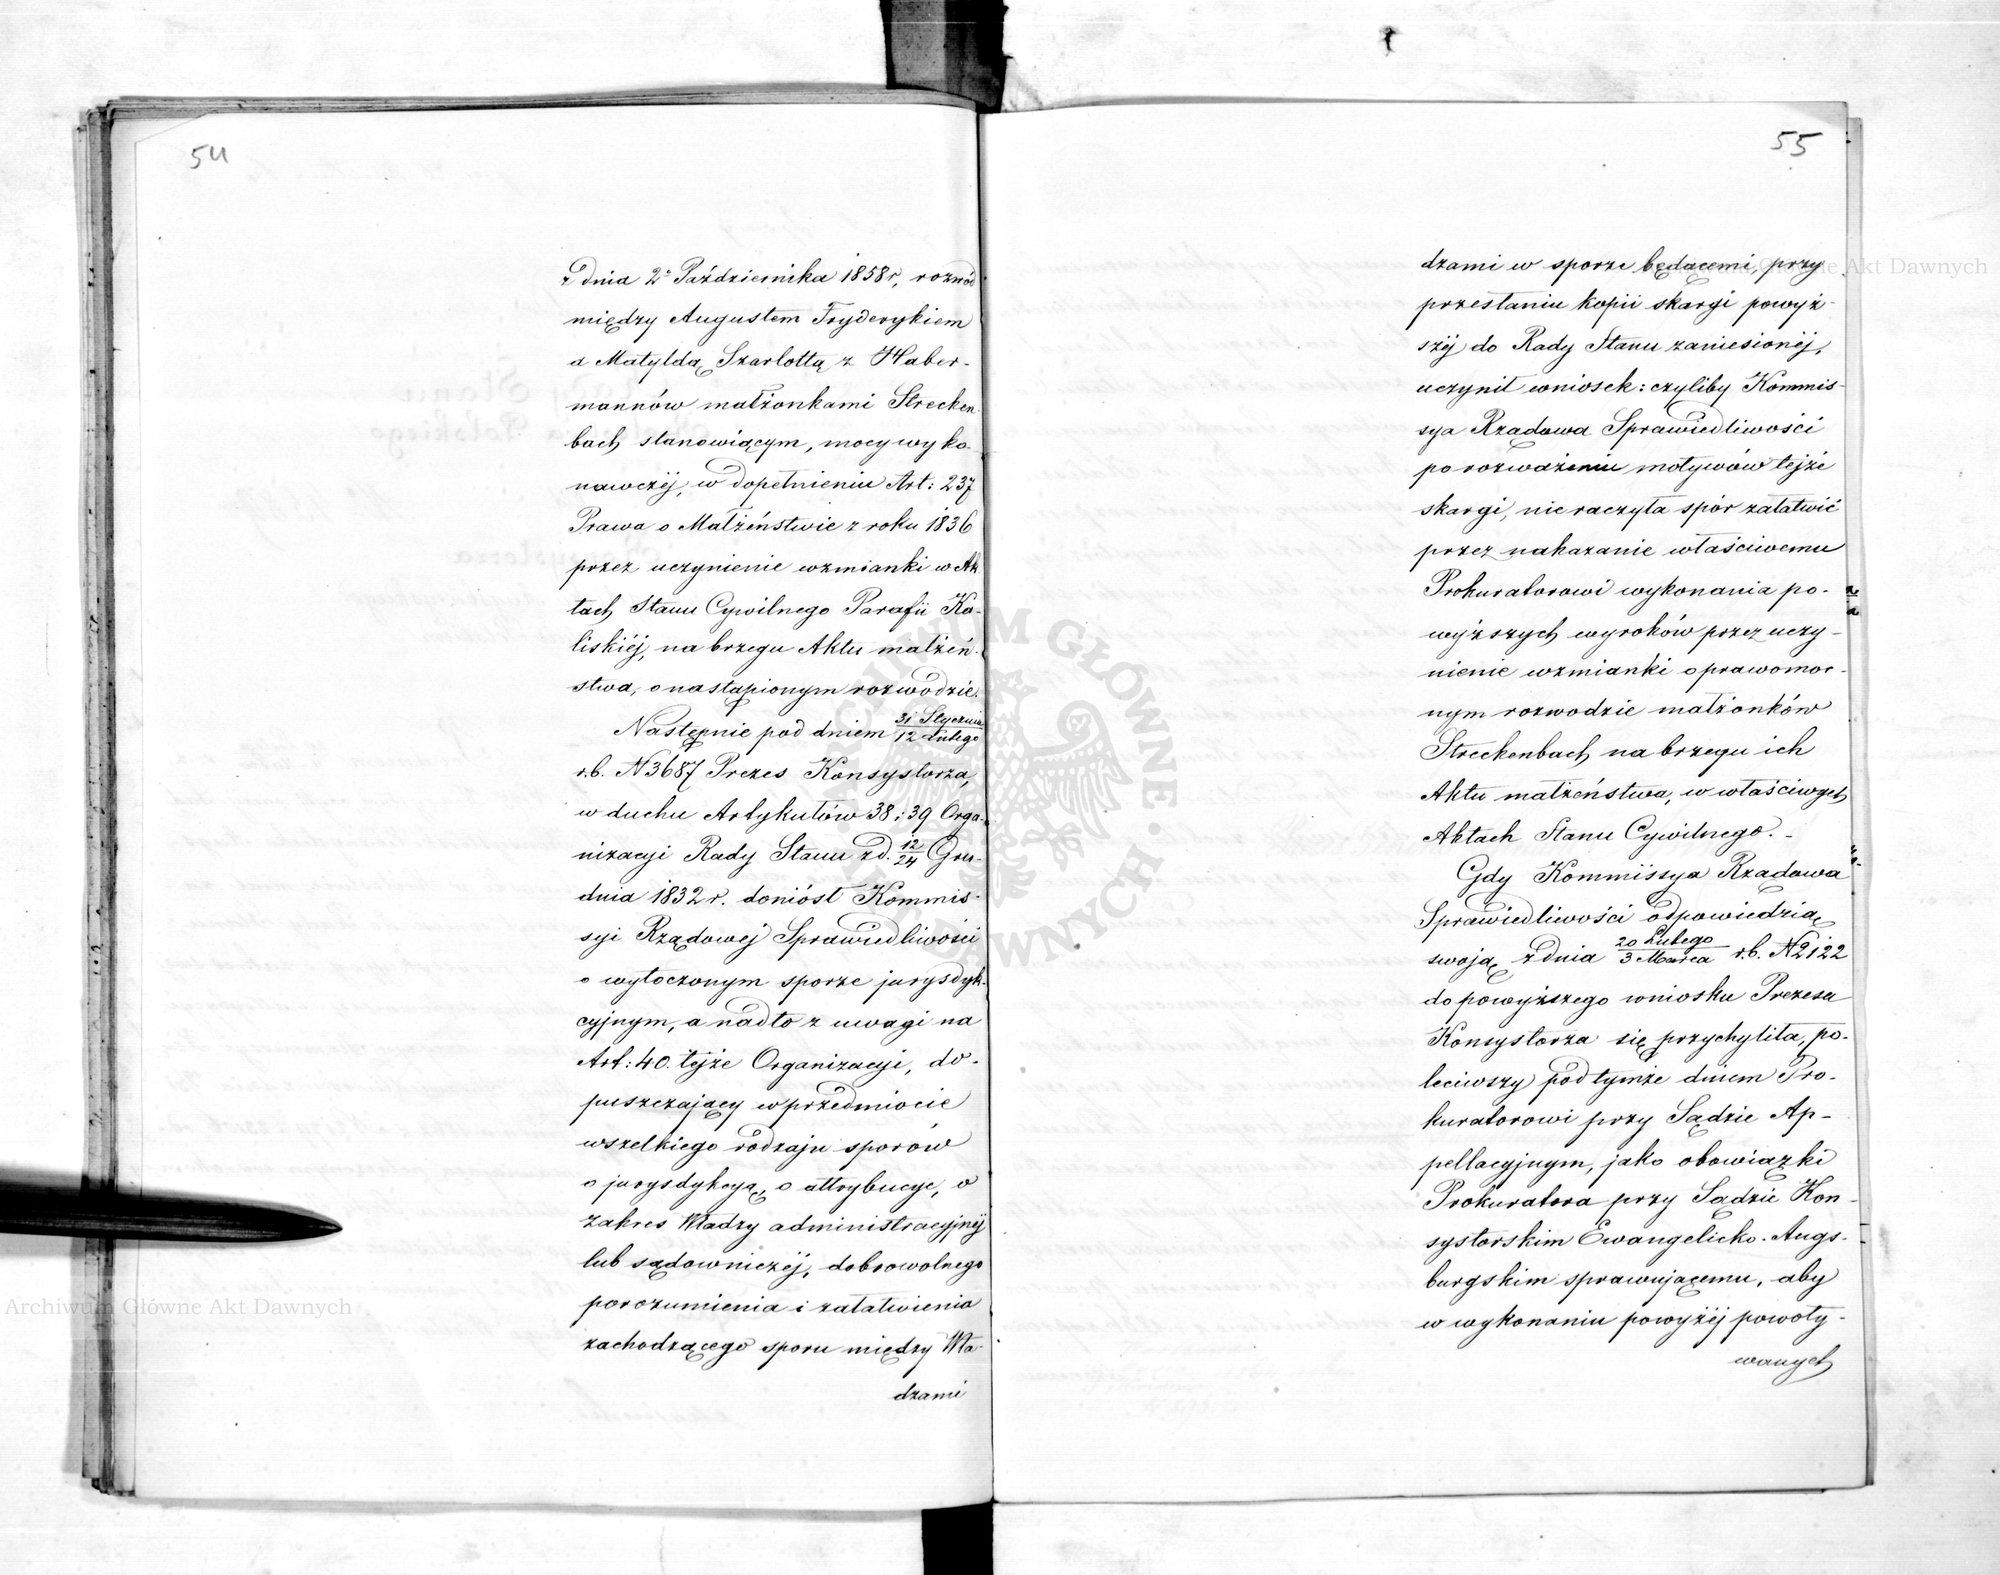 54
z dnia 2º Października 1858 r, rozwód
między Augustem Fryderykiem
a Matyldą Szarlottą z Haber-
mannów małżonkami Strecken-
bach stanowiącym, mocy wyko-
nawczéj, w dopełnieniu Art: 237
Prawa o Małżeństwie z roku 1836
przez uczynienie wzmianki w Ak
tach Stanu Cywilnego Parafii Ka-
liskiéj, na brzegu Aktu małżeń-
stwa, o nastąpionym rozwodzie.
Następnie pod dniem 31 Stycznia / 12 Lutego
r.b. N 3687 Prezes Konsystorza,
w duchu Artykułów 38 i 39 Orga-
nizacyi Rady Stanu z d. 12/24 Gru-
dnia 1832 r. doniósł Kommis-
syi Rządowej Sprawiedliwości
o wytoczonym sporze jurysdyk-
cyjnym, a nadto z uwagi na
Art: 40. tejże Organizacyi, do-
puszczający w przedmiocie
wszelkiego rodzaju sporów
o jurysdykcyą, o attrybucye, o
zakres Władzy administracyjnéj
lub sądowniczéj, dobrowolnego
porozumienia i załatwienia
zachodzącego sporu między Wła-
dzami
55
dzami w sporze będącemi, przy
przesłaniu kopii skargi powyż-
széj do Rady Stanu zaniesionéj,
uczynił wniosek: czyliby Kommis-
sya Rządowa Sprawiedliwości
po rozważeniu motywów tejże
skargi, nie raczyła spór załatwić
przez nakazanie właściwemu
Prokuratorowi wykonania po-
wyższych wyroków przez uczy-
nienie wzmianki o prawomoc-
nym rozwodzie małżonków
Streckenbach na brzegu ich
Aktu małżeństwa, w właściwych
Aktach Stanu Cywilnego. -
Gdy Kommissya Rządowa
Sprawiedliwości odpowiedzią
swoją z dnia 20 Lutego / 3 Marca r.b. N 2122
do powyższego wniosku Prezesa
Konsystorza się przychyliła, po-
leciwszy pod tymże dniem Pro-
kuratorowi przy Sądzie Ap-
pellacyjnym, jako obowiązki
Prokuratora przy Sądzie Kon-
systorskim Ewangelicko-Augs-
burgskim sprawującemu, aby
w wykonaniu powyżéj powoły-
wanych
Archiwum Główne Akt Dawnych